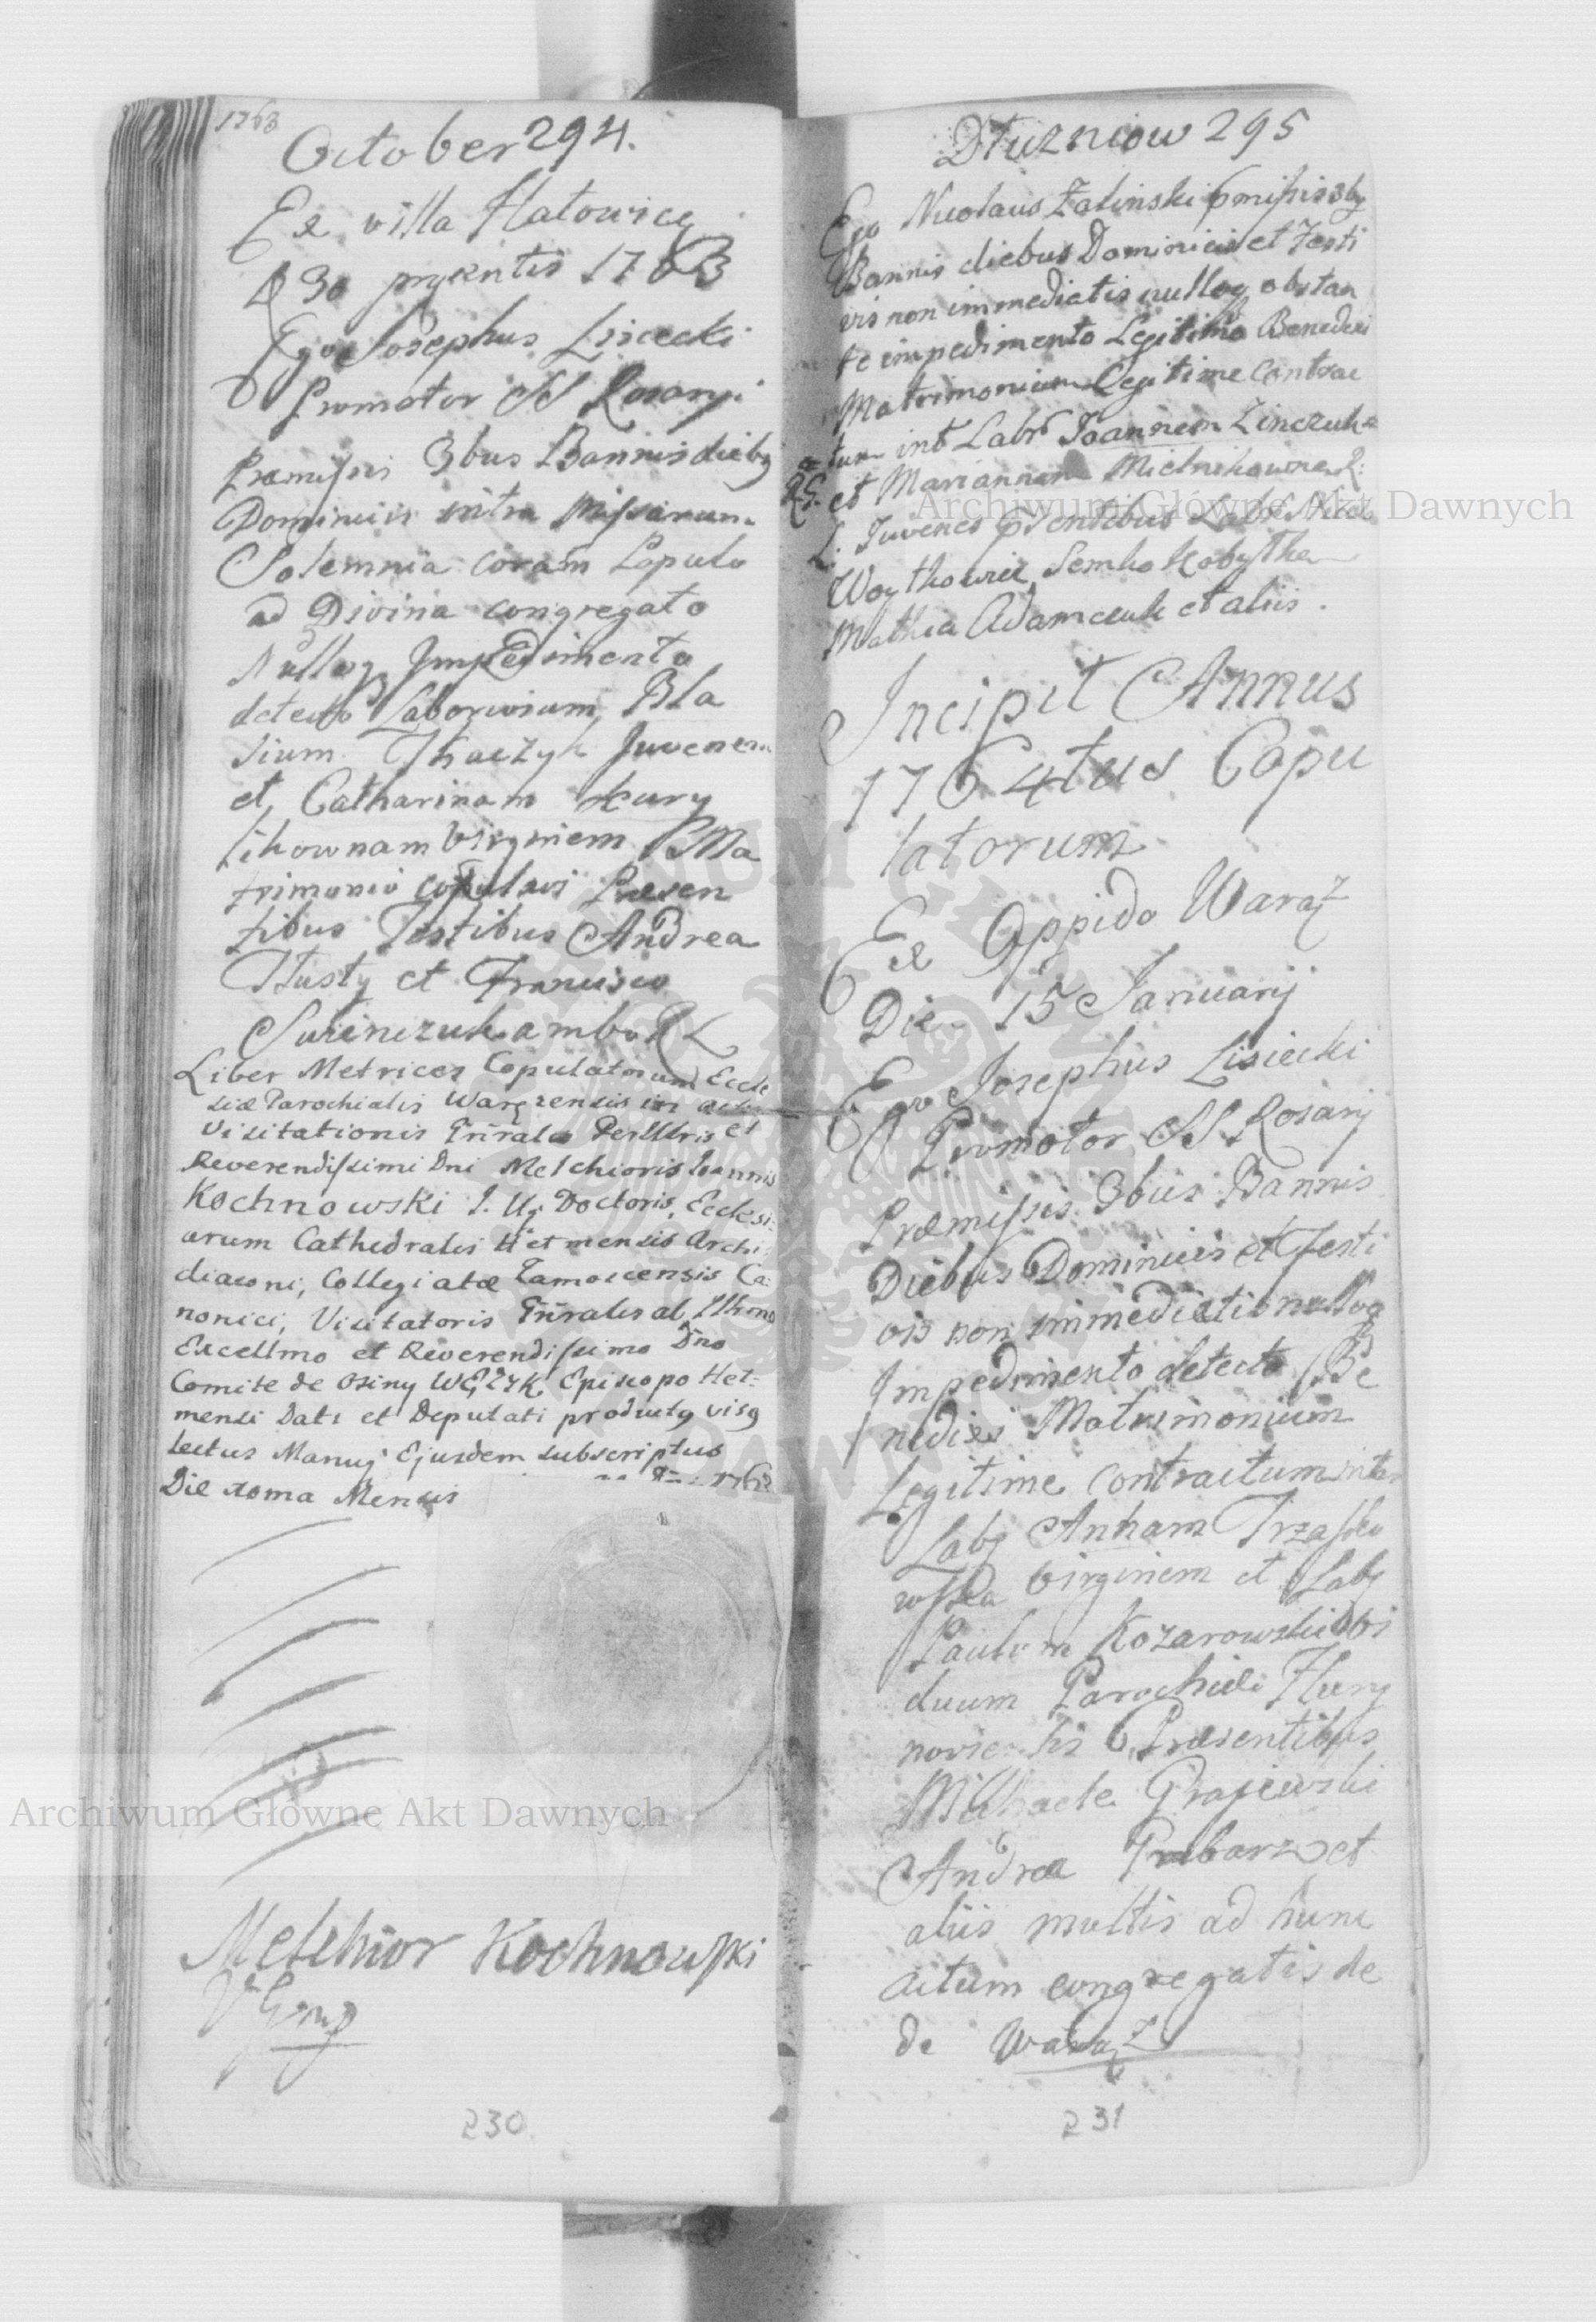 1763
October 294.
Ex villa Hatowice
D 30 presentis 1763
Ego Josephus Lisiecki
Promotor SS Rosarii
Præmissis 3bus Bannis diebg
Dominicis intra Missarum
Solemnia coram Populo
ad Divina congregato
Nulloq Impedimento
detecto Laboriosum Bla
sium Tkaczyk Juvenem
et Catharinam Kury
likownam Virginem Ma
trimonio copulavi Præsen
tibus Testibus Andrea
Tłusty et Francisco
ambo RL
Liber Metrices Copulatorum Eccle
siæ Parochialis Waręzensis in actu
Visitationis Gńralis PerIllris et
Reverendissimi Dni Melchioris Joannis
Kochnowski I. U. Doctoris, Ecclesi:
arum Cathedralis Hełmensis Archi
diaconi, Collegiatæ Zamoscensis Ca:
nonici, Visitatoris Gńralis ab Illmo
Excellmo et Reverendissimo Dno
Comite de Osiny WĘZYK Episcopo Heł:
mensi Dati et Deputati productg visg
lectus Manuq Ejusdem subscriptus
Die xoma Mensis 1763
Melchior Kochnowski
VGnlg
230
Dłuzniow 295
Ego Nicolaus Zalinski pmissis 3bg
Bannis diebus Dominicis et Festi
vis non immediatis nulloq obstan
te impedimento Legitimo Benedixi
Matrimonium Legitime Contrac
tum int Labr Joannem Zinczuk
et Mariannam Mielnikowna R:
L. Juvenes psentibus Labr Nico
Woytkowicz Semko Kobyłka
Mathia Adamczuk et aliis.
Incipit Annus
1764tus Copu
latorum
Ex Oppido Waręz
Die 15 Januarij
Ego Josephus Lisiecki
Promotor SS Rosarij
Præmissis 3bus Bannis
Diebus Dominicis et Festi
vis non immediatis nulloq
Impedimento detecto Be
nedixi Matrimonium
Legitime contractum inter
Labg Annam Trzasko
wska Virginem et Labg
Paulum Kozarowski Vi
duum Parochiæ
Præsentibus
Michaele Grajewski
Andrea et
aliis multis ad hunc
actum congregatis de
de Waręz
231
Archiwum Główne Akt Dawnych
Archiwum Główne Akt Dawnych